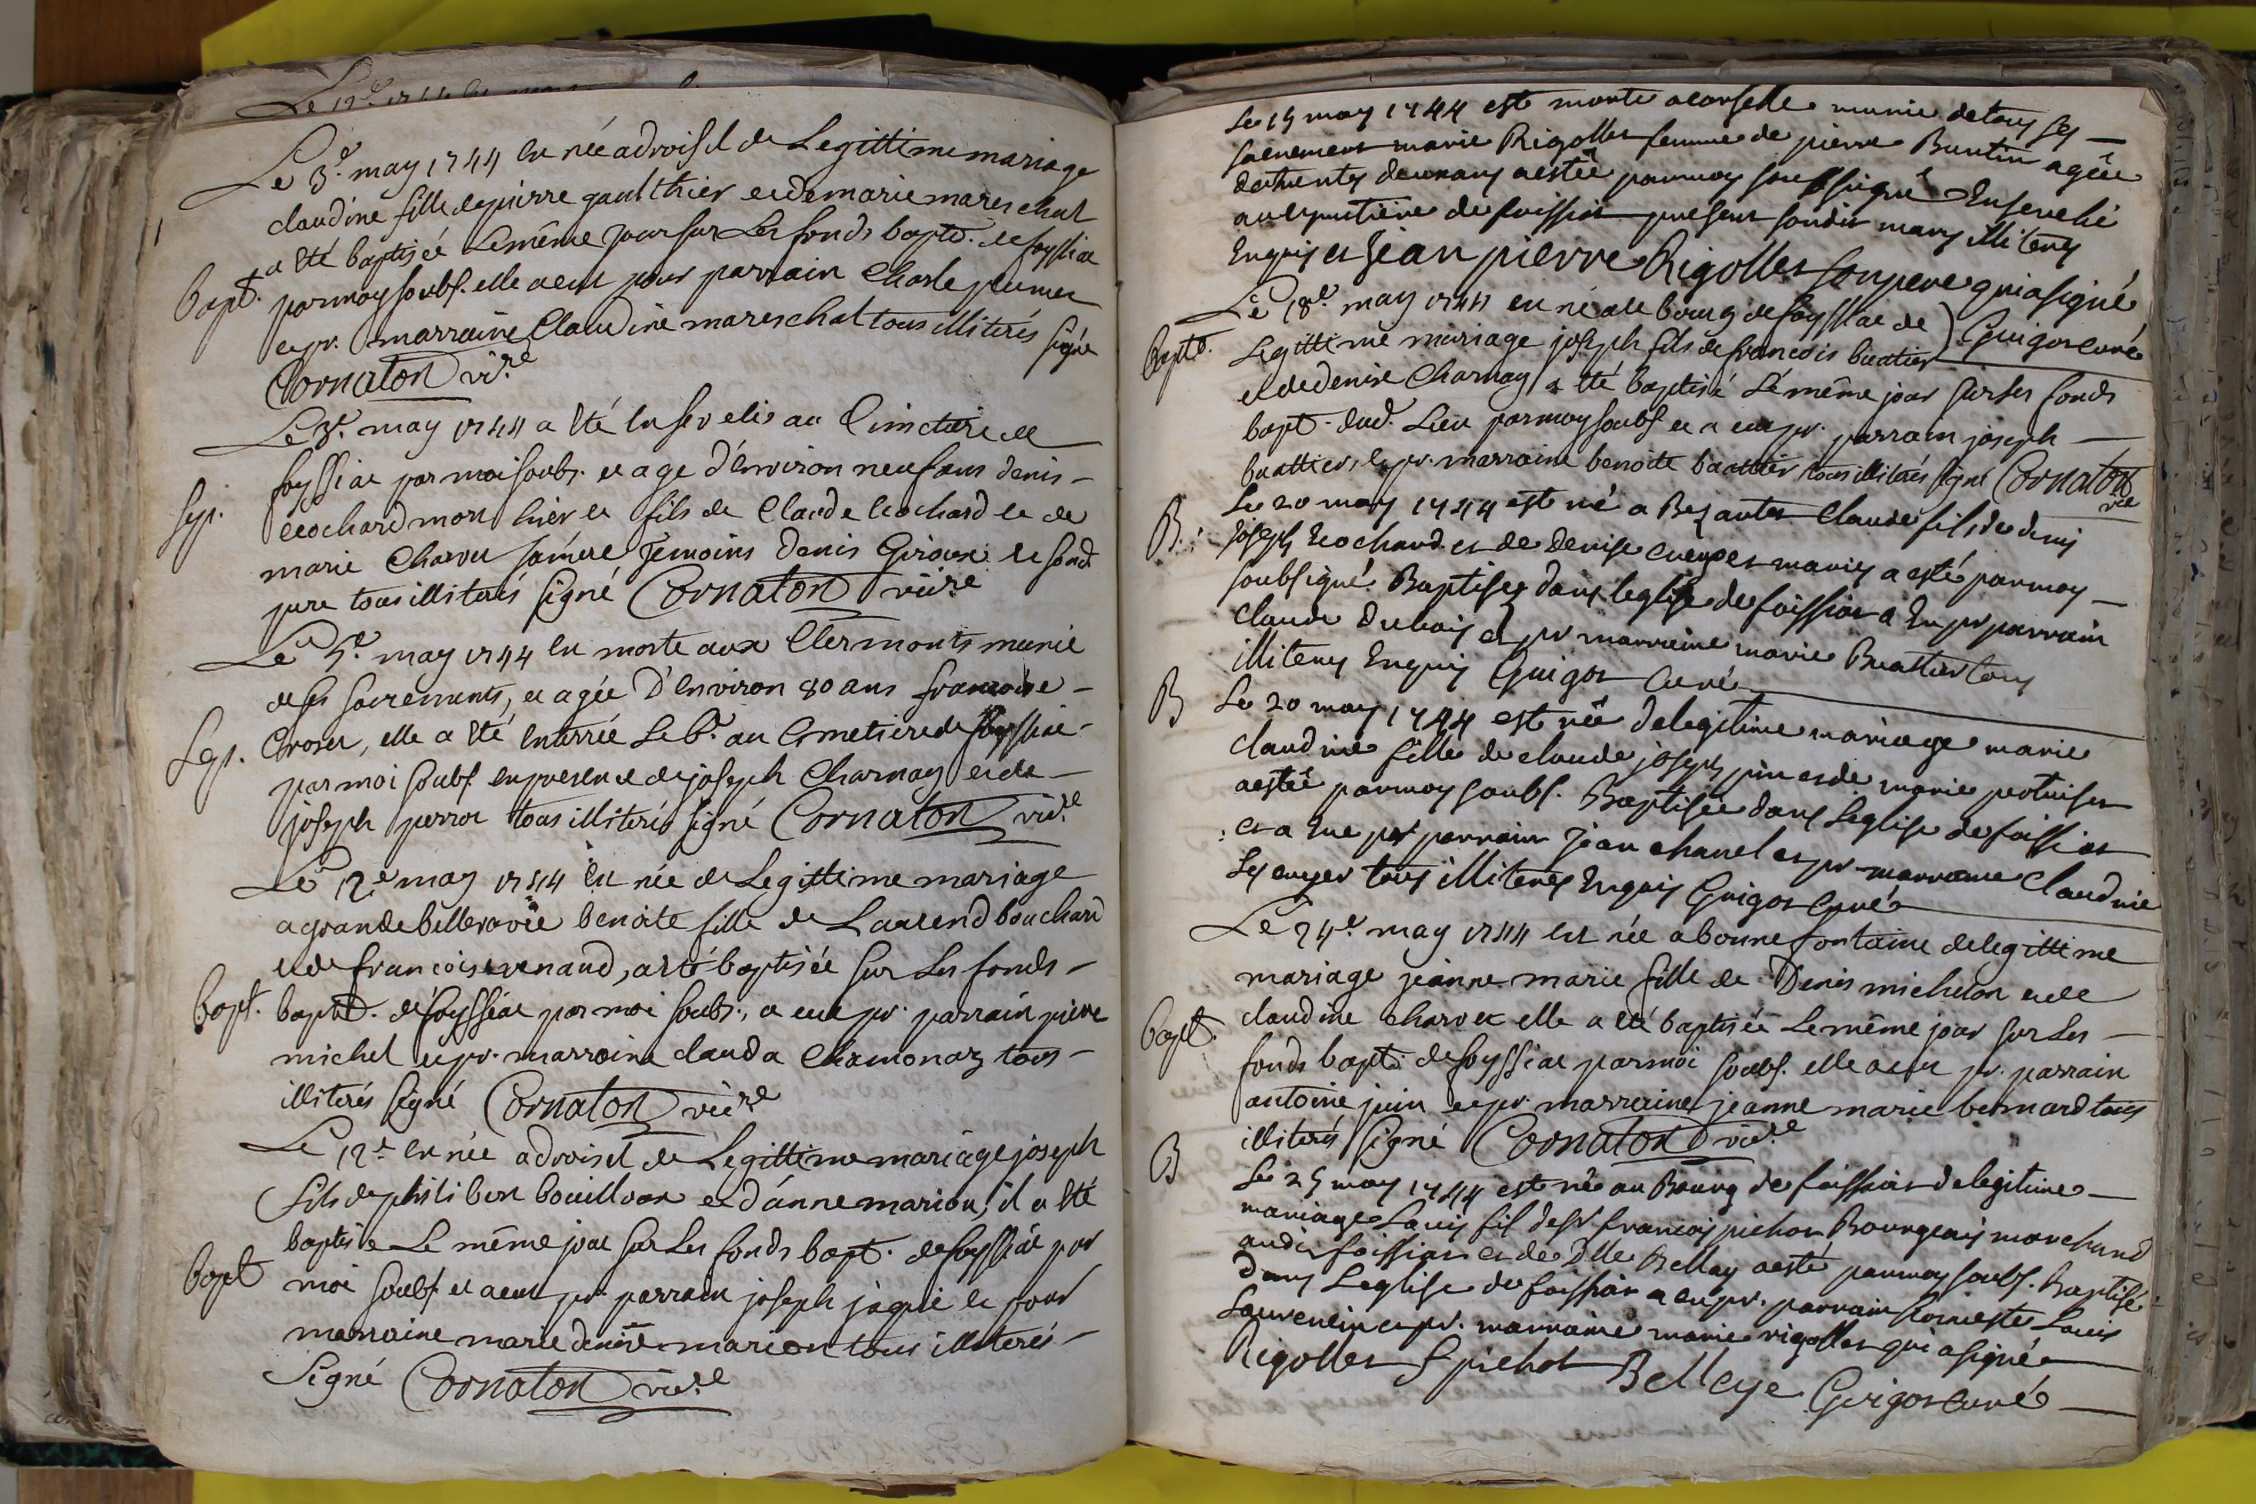 Le 3.e may 1744 en née a droisel de Legittime mariage
claudine fille de pierre gaulthier et de marie mareschal
Bapt. a été baptisée Le même jour sur Les fonds bapt. de foyssiac
par moy soubs. elle a eut pour parrain Charle
et pr. marraine Claudine mareschal tous illiterés signé
Cornaton vic.re
Le 3.e may 1744 a été Enseveli au Cimetiere de
foyssiac par moi soubs. et age d'environ neuf ans denis
Sep. ecochard mort hier et fils de Claude Ecochard et de
marie Charvet sa mere Temoins Denis Giroux et son
pere tous illiterés signé Cornaton vic.re
Le 5.e may 1744 en morte aux Clermonts munie
de ses sacrements, et agée D'Environ 80 ans francoise
Sep. Croset, elle a été Enterrée Le 6.e au Cimetiere de foyssiac
par moi soubs. en presence de joseph Charnay et de
joseph perrot tous illiterés signé Cornaton vic.re
Le 12.e may 1744 en née de Legittime mariage
a grande bellevavre benoite fille de Laurend bouchard
et de francoise renaud, a été baptisée sur Les fonds
Bapt. bapt. de foyssiac par moi soubs., a eut pr. parrain pierre
michel et pr. marraine clauda Chamonaz tous
illiterés signé Cornaton vic.re
Le 12.e en née a droisel de Legittime mariage joseph
fils de philibert bouilloux et d'anne marion, il a été
baptisé Le même jour sur Les fonds bapt. de foyssiac par
Bapt. moi soubs. et a eut pr. parrain joseph et pour
marraine marie denise marion tous illiterés
signé Cornaton vic.re
Le 15 may 1744 est morte a corselle munie de tous ses
sacremens marie Rigollet femme de pierre Buntin agée
de trente deux ans a esté par moy soussigné Ensevelie
au cymetiere de foissiat present son dit mary illiteres
Enquis et jean pierre Rigollet son pere qui a signé
Guigot curé
Le 18.e may 1744 en né au bourg de foyssiac de
Bapt. Legittime mariage joseph fils de francois buatier
et de denise Charnay a été baptisé Le même jour sur Les fonds
bapt. dud. Lieu par moy soubs. et a eut pr. parrain joseph
buattier, et pr. marraine benoite buattier tous illiterés signé Cornaton
vic.re
B. Le 20 may 1744 est né a Bezantet Claude fils de denis
joseph Ecochard et de denise mariés a esté par moy
soubsigné Baptisez dans leglise de foissiat a Eu pr parrain
claude Dubois et pr marraine marie Buattier tous
illiteres Enquis Guigot curé
B Le 20 may 1744 est née de legitime mariage marie
claudine fille de claude joseph et de marie
a estée par moy soubs. Baptisée dans Leglise de foissiat
et a Eue pr parrain jean chanel et pr marraine claudine
tous illiteres Enquis Guigot curé
Le 24.e may 1744 en née a bonne fontaine de legittime
mariage jeanne marie fille de Denis michelon et de
Bapt. claudine charvet elle a été baptisée Le même jour sur Les
fonds bapt. de foyssiac par moi soubs. elle a eut pr. parrain
antoine juin et pr. marraine jeanne marie bernard tous
illiterés signé Cornaton vic.re
B Le 25 may 1744 est né au Bourg de foissiat de legitime
mariage Louis fils de Sr. francois pichot Bourgeois marchand
audit foissiat et de D.lle Bellay a esté par moy soubs. Baptisé
Dans Leglise de foissiat a eu pr. parrain Louis
et pr. marraine marie rigollet qui a signé
Rigollet F pichot Bellaye Guigot curé